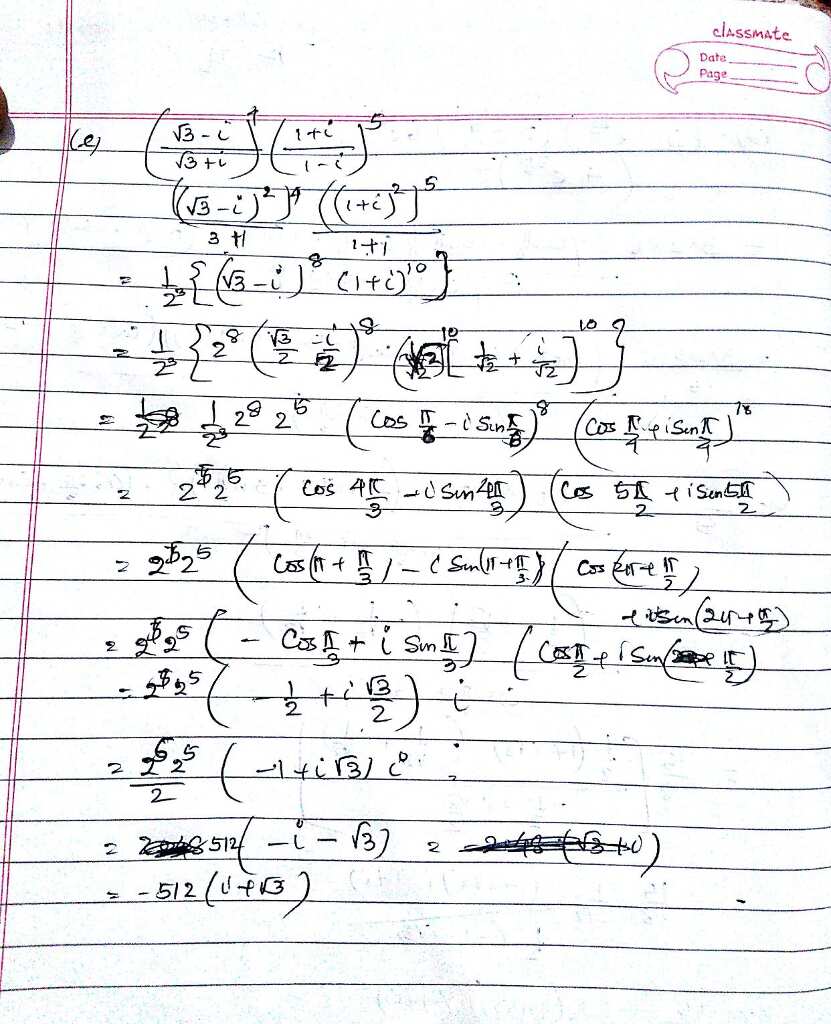 classmate
Date
Page
(e) ((√3 - i)/(√3 + i))^4 ((1+i)/(1-i))^5
((√3 - i)^2)^4/(3+1) ((1+i)^2)^5/(1+i)
= 1/2^3 {(√3 - i)^8 (1+i)^10}
= 1/2^3 {2^8 (√3/2 - i/2)^8 (√2)^10 [1/√2 + i/√2)^10}
= 1/2^3 2^8 2^5 (Cos π/6 - i Sin π/6)^8 (Cos π/4 + i Sin π/4)^10
= 2^5 2^5 (Cos 4π/3 - i Sin 4π/3) (Cos 5π/2 + i Sin 5π/2)
= 2^5 2^5 (Cos(π + π/3) - i Sin(π + π/3)) (Cos (2π + π/2)
+ i Sin (2π + π/2)
= 2^5 2^5 (- Cos π/3 + i Sin π/3) (Cos π/2 + i Sin π/2)
= 2^5 2^5 (- 1/2 + i √3/2) i
= 2^5 2^5/2 (-1 + i√3) i
= 512 (-i - √3) =
= -512 (i + √3)